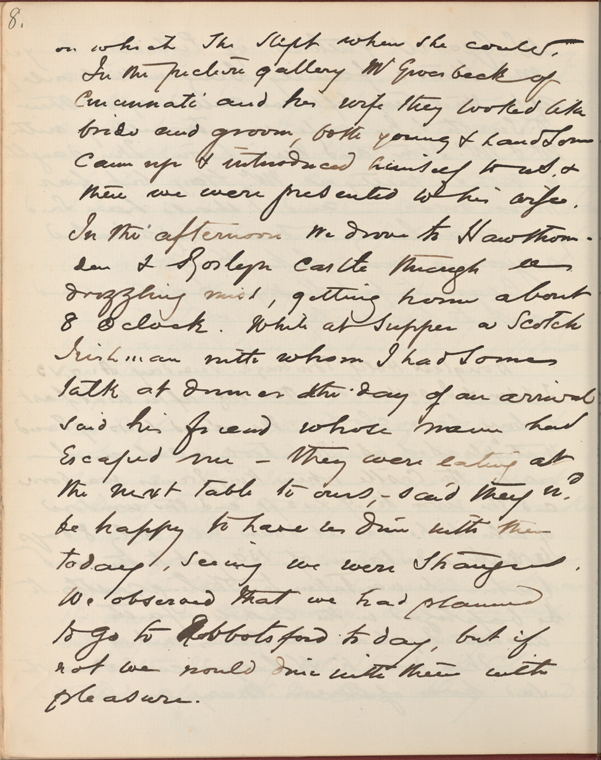 8.
on which she slept when she could.
In the picture gallery Mr Groesbeck of
Cincinnati and his wife they looked like
bride and groom, both young & handsome
came up & introduced himself to us. &
then we were presented to his wife.
In the afternoon we drove to Hawthorn-
den & Roslyn Castle through a
drizzling mist, getting home about
8 oclock. While at supper a Scotch
Irishman with whom I had some
talk at dinner the day of our arrival
said his friend whose name had
escaped me - they were eating at
the next table to ours, - said they wd
be happy to have us dine with them
today, seeing we were strangers.
We observed that we had planned
to go to Abbotsford to day, but if
not we would dine with them with
pleasure.